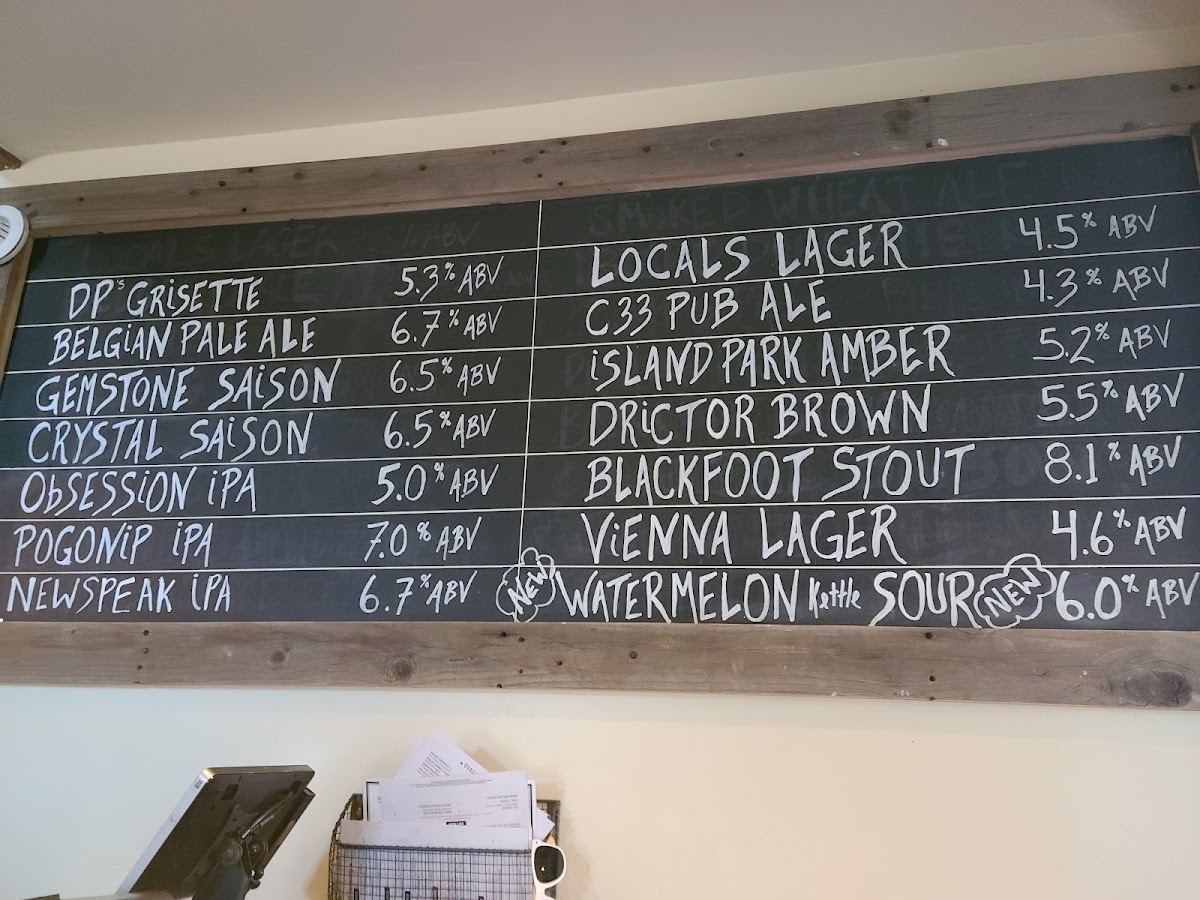 LOCALS LAGER % ABV
DP'S GRiSETTE 5.3% ABV
BELGiAN PALE ALE 6.7% ABV
GEMSTONE SAiSON 6.5% ABV
CRYSTAL SAiSON 6.5% ABV
ObSESSiON iPA 5.0% ABV
POGONiP iPA 7.0% ABV
NEWSPEAK iPA 6.7% ABV
SMOKED WHEAT ALE
LOCALS LAGER 4.5% ABV
C33 PUB ALE 4.3% ABV
iSLAND PARK AMBER 5.2% ABV
DRiCTOR BROWN 5.5% ABV
BLACKFOOT STOUT 8.1% ABV
ViENNA LAGER 4.6% ABV
NEW WATERMELON Kettle SOUR NEW 6.0% ABV